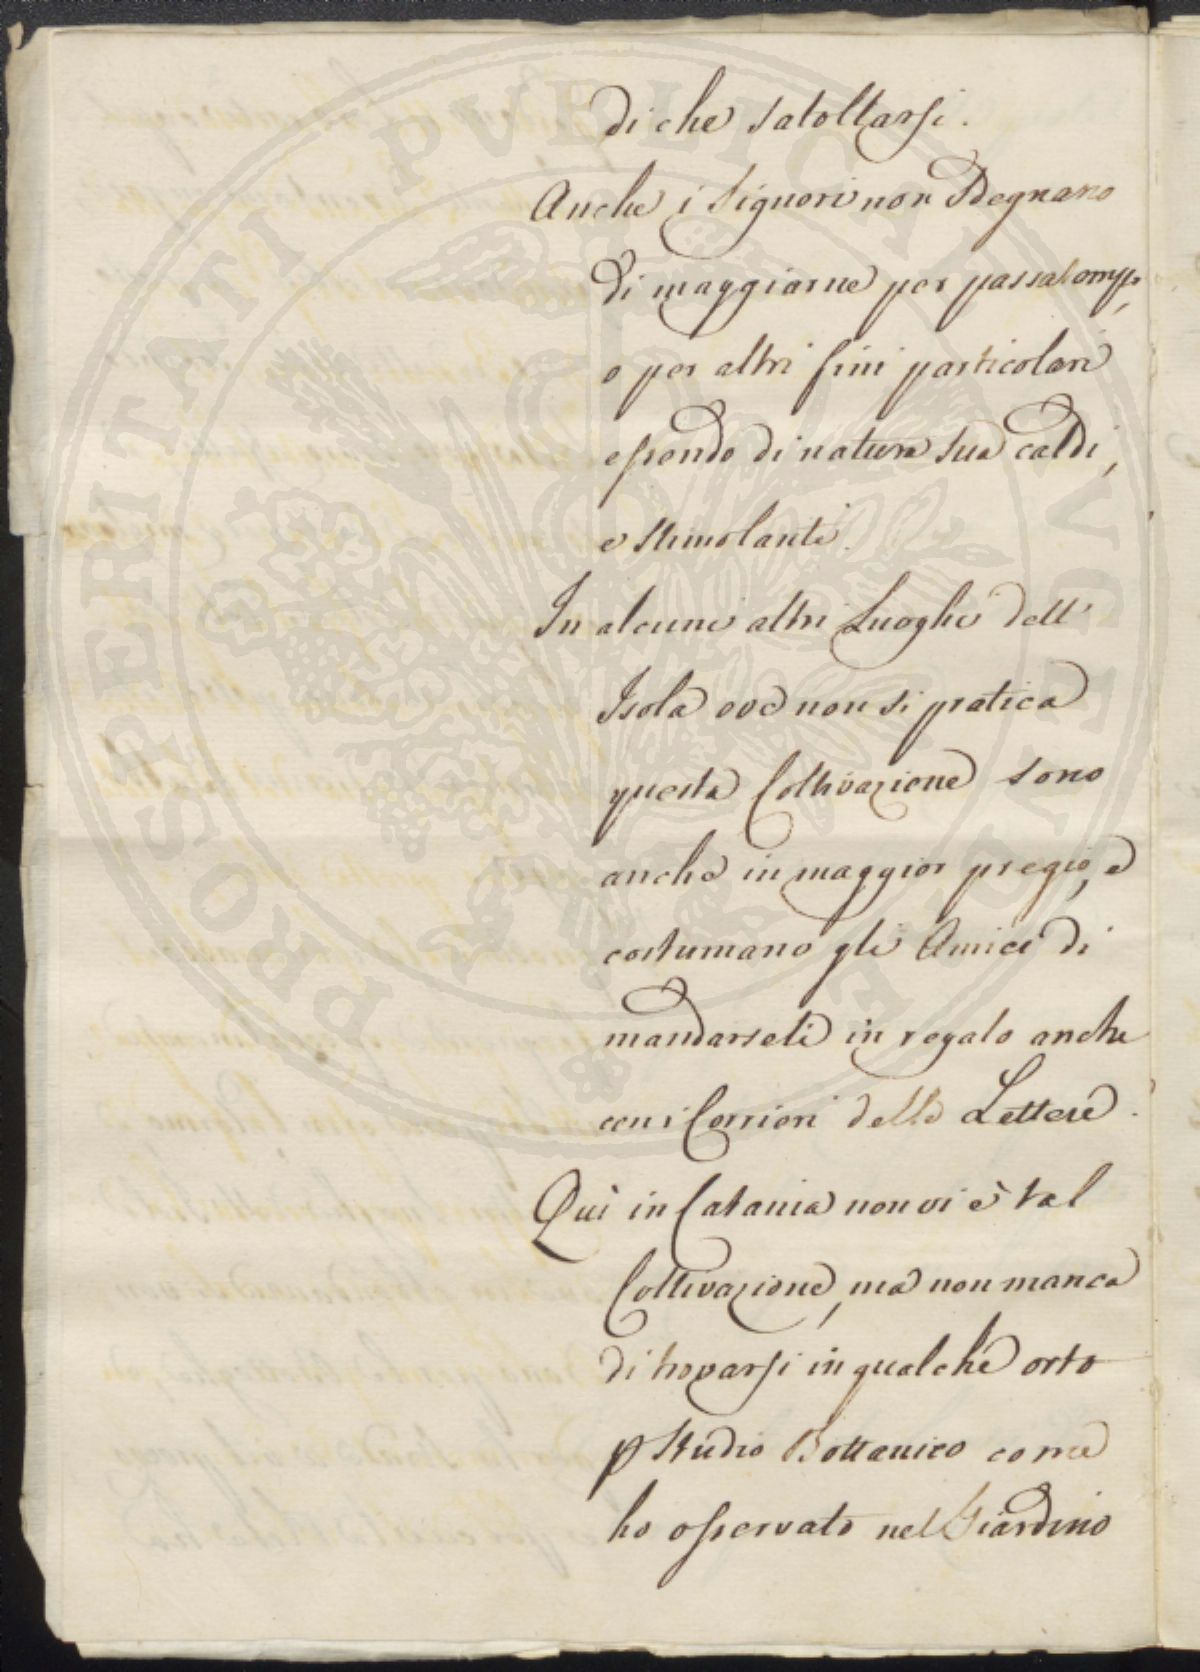 di che satollarsi.
Anche i Signori non sdegnano
di maggiarne per passatemp,
o per altri fini particolari
essendo di natura sua caldi,
e stimolanti.
In alcuni altri Luoghi dell'
Isola ove non si pratica
questa Coltivazione sono
anche in maggior pregio, e
costumano gli Amici di
mandarseli in regalo anche
con i Corrieri delle Lettere.
Quì in Catania non vi è tal
Coltivazione, ma non manca
di trovarsi in qualche orto
p Studio Bottanico come
ho osservato nel Giardino
PROSPERITATI PVBLICAE AVGENDAE